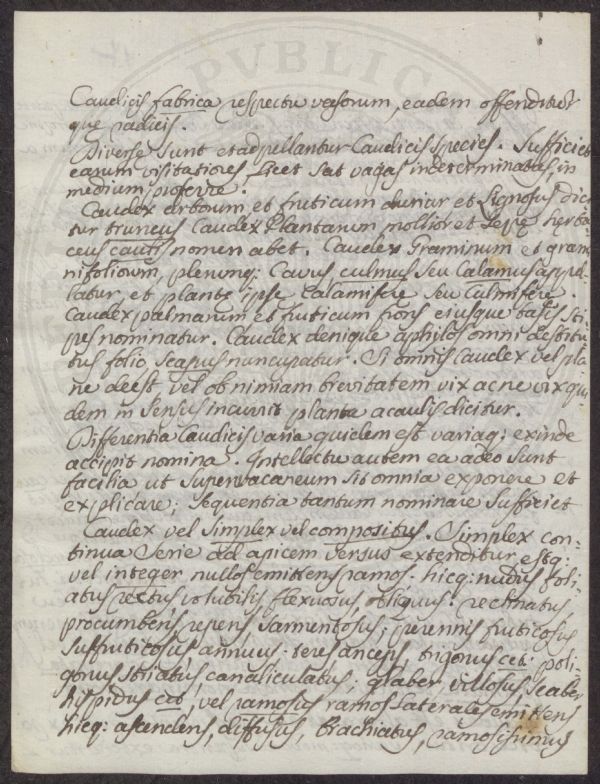 PVBLIC
Caudicis fabrica respectu vasorum, eadem offenditur
que radicis.
Diverse sunt et adpellantur Caudicis species. Sufficiet
earum visitatiores, licet sat vagas indeterminatas, in
medium proferre.
Caudex arborum et fruticum durior et Lignosus dici
tur truncus Caudex Plantarum mollior et sepe herba
ceus caulis nomen abet. Caudex Graminum et grami
nifoliorum, plerumq: Cavus, culmus seu Calamus appel
latur et plante ipse Calamifere seu Culmifere.
Caudex palmarum et fruticum frons eiusque basis sti
pes nominatur. Caudex denique aphilos omni destitu
tus folio, scapus nuncupatur. Si omnis Caudex vel pla
ne deest vel ob nimiam brevitatem vix ac ne vix qui
dem in sensus incurrit planta acaulis dicitur.
Differentia Caudicis varia quidem est variaq; exinde
accipit nomina. Intellectu autem ea adeo sunt
facilia ut supervacaneum sit omnia exponere et
explicare; sequentia tantum nominare sufficiet
Caudex vel simplex vel compositus. Simplex con-
tinua serie ad apicem versus extenditur estq:
vel integer nullos emittens ramos. hicq: nudus foli-
atus rectus, volubilis flexuosus, obliquus: reclinatus,
procumbens, repens, sarmentosus; perennis fruticosus
suffruticosus annuus. teres anceps, trigonus cet: poli-
gonus striatus canaliculatus; glaber, villosus scaber
hispidus cet, vel ramosus ramos laterales emittens
hicq: ascendens, diffusus, brachiatus, ramosissimus